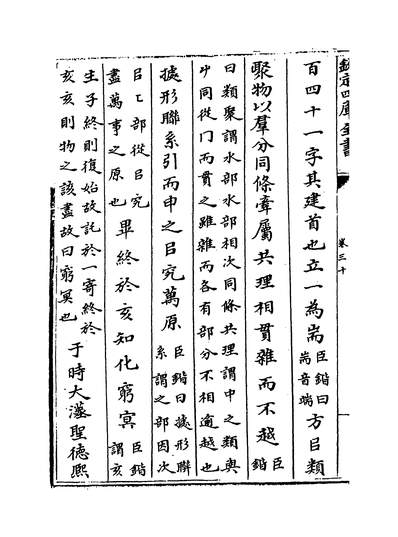 欽定四庫全書
卷三十
百四十一字其建首也立一為耑
臣鍇曰
耑音端
方㠯類
聚物以羣分同條牽屬共理相貫雜而不越
臣
鍇
曰類聚謂水部水部相次同條共理謂中之類與
屮同從门而貫之雖雜而各有部分不相逾越也
據形聯系引而申之㠯究萬原
臣鍇曰據形聯
系謂之部因次
㠯部從㠯究
盡萬事之原也
畢終於亥知化窮冥
臣鍇
謂亥
生子終則復始故託於一寄終於
亥亥則物之該盡故曰窮冥也
于時大漢聖德熙